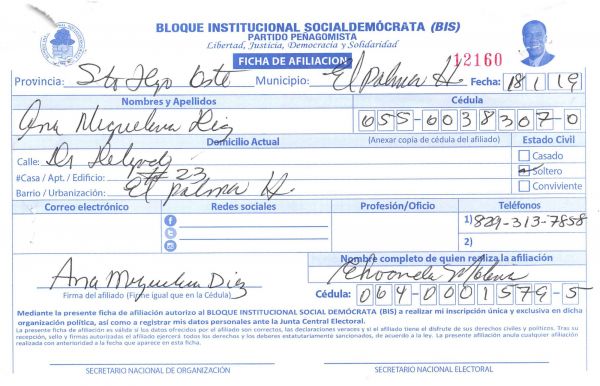 BLOQUE INSTITUCIONAL SOCIALDEMÓCRATA (BIS)
PARTIDO PEÑAGOMISTA
Libertad, Justicia, Democracia y Solidaridad
FICHA DE AFILIACION
12160
Provincia: Sto Dgo Oste Municipio: El Palmar H. Fecha: 18/1/19
Nombres y Apellidos Cédula
Ana Miguelina Diaz 055-0038307-0
Domicilio Actual (Anexar copia de cédula del afiliado) Estado Civil
Calle: Dr Delgado
#Casa / Apt. / Edificio: # 23
Barrio / Urbanización: El Palmar H.
Casado
Soltero
Conviviente
Correo electrónico Redes sociales Profesión/Oficio Teléfonos
1) 829-313-7858
2)
Nombre completo de quien realiza la afiliación
Ana Miguelina Diaz
Firma del afiliado (Firme igual que en la Cédula)
Cédula: 064-0001579-5
Mediante la presente ficha de afiliación autorizo al BLOQUE INSTITUCIONAL SOCIAL DEMÓCRATA (BIS) a realizar mi inscripción única y exclusiva en dicha
organización política, así como a registrar mis datos personales ante la Junta Central Electoral.
La presente ficha de afiliación es válida si los datos ofrecidos por el afiliado son correctos, las declaraciones veraces y si el afiliado tiene el disfrute de sus derechos civiles y políticos. Tras su
recepción, sello y firmas autorizadas el afiliado ejercerá todos los derechos y los deberes estatutariamente sancionados, de acuerdo a la ley. La presente afiliación anula cualquier afiliación
realizada con anterioridad a la fecha que aparece en esta ficha.
SECRETARIO NACIONAL DE ORGANIZACIÓN SECRETARIO NACIONAL ELECTORAL